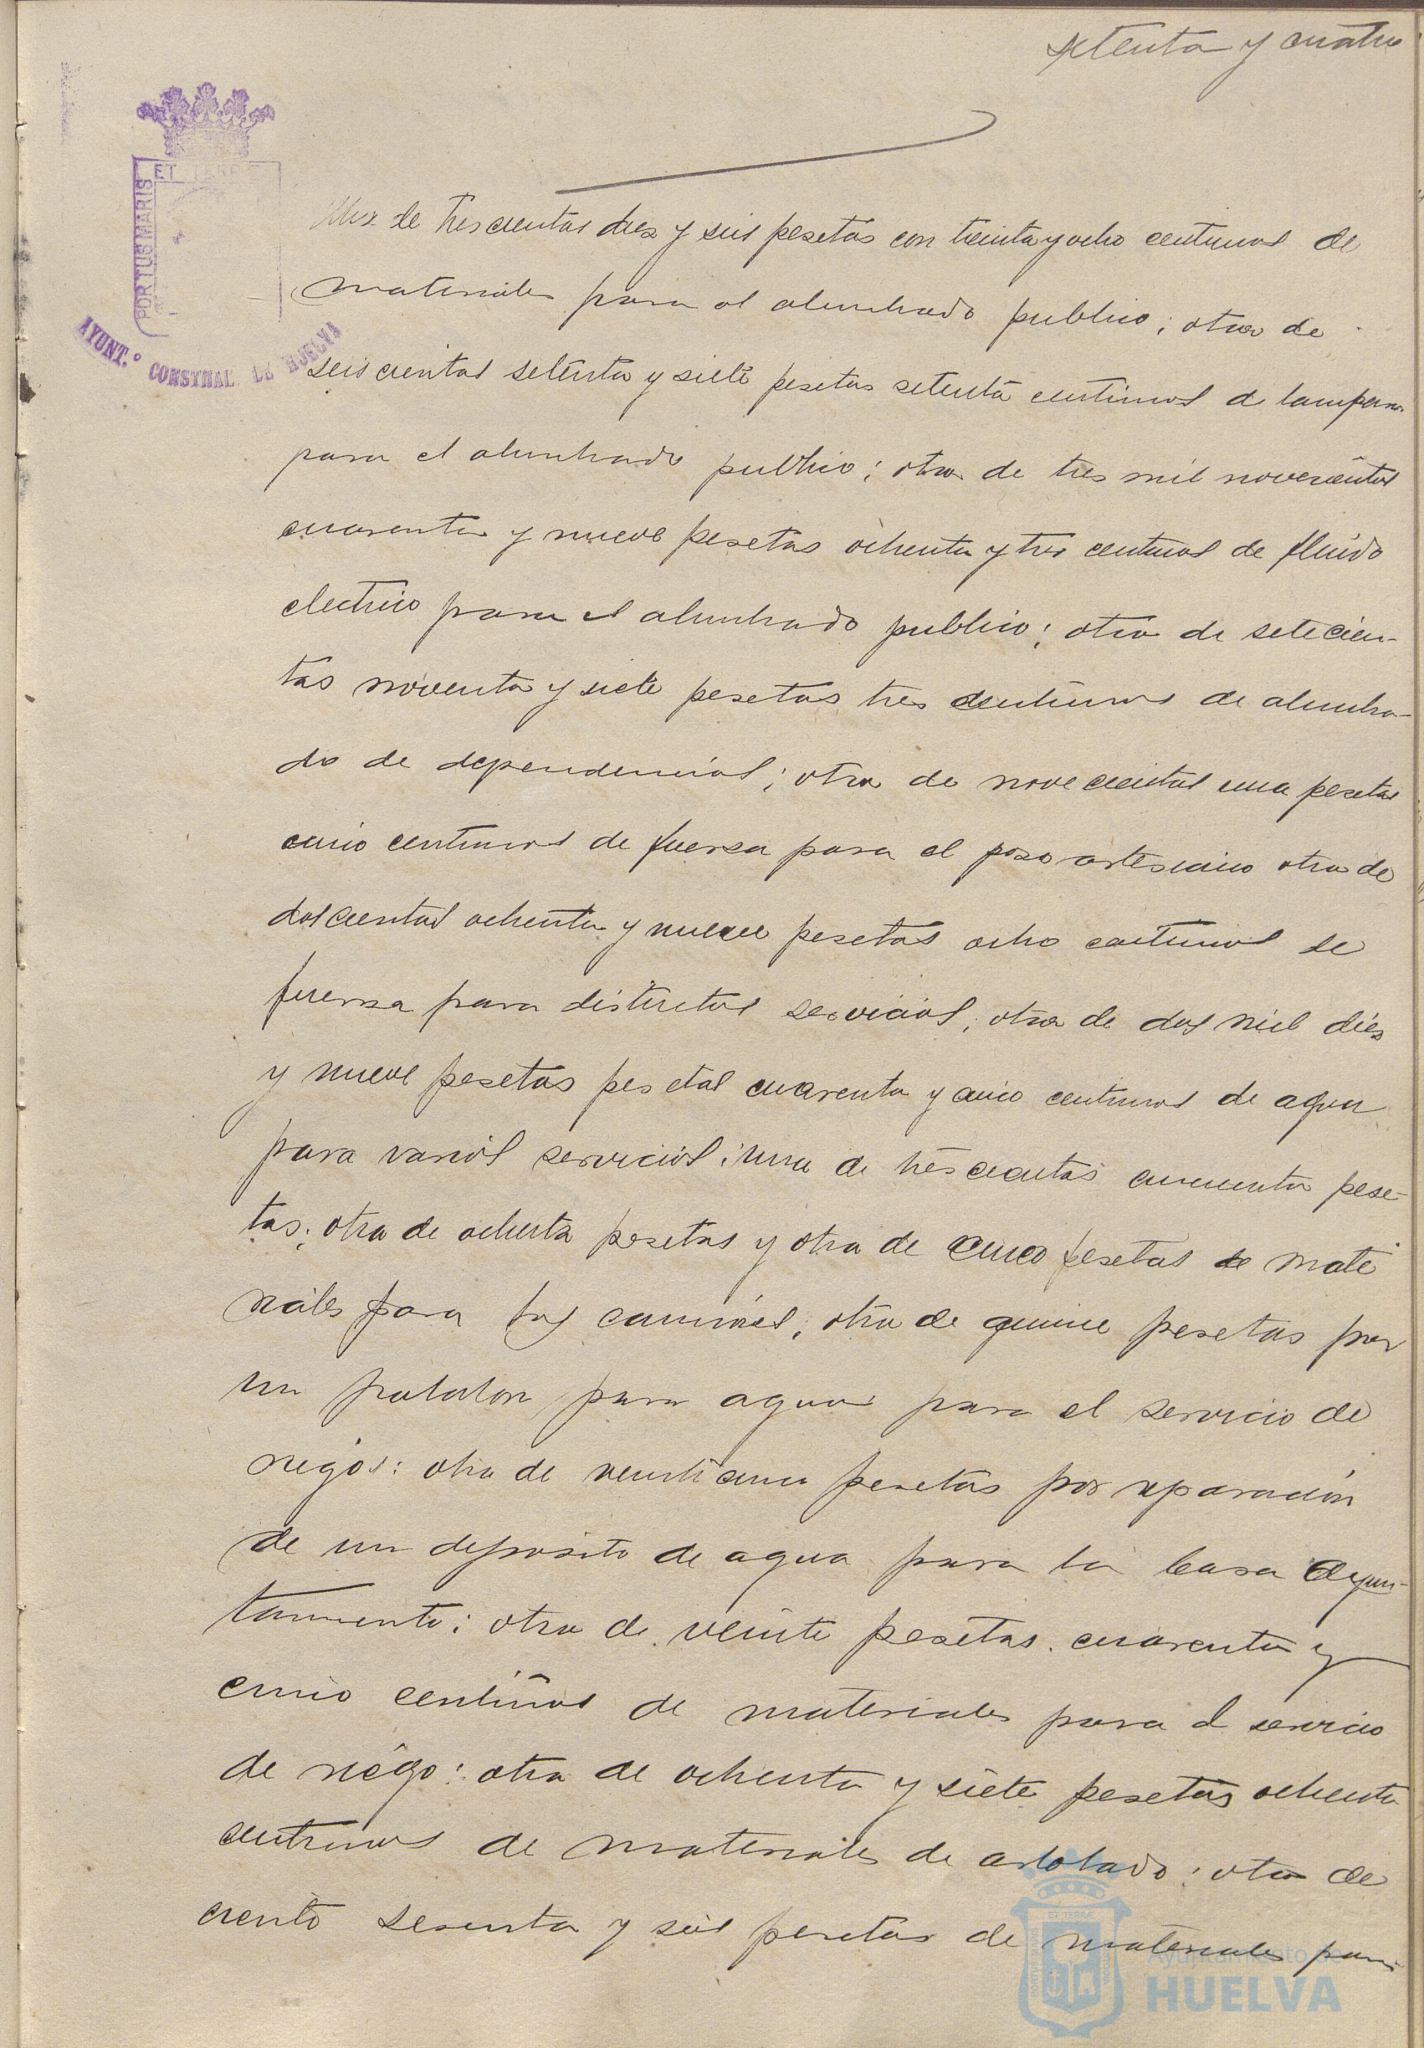 setenta y cuatro
ET TERR
PORTUS MARIS
AYUNT.º CONSTNAL DE HUELVA
de trescientas diez y seis pesetas con treinta y ocho centimos de
materiales para el alumbrado publico; otra de
seiscientas setenta y siete pesetas setenta centimos de lamparas
para el alumbrado publico; otra de tres mil novecientas
cuarenta y nueve pesetas ochenta y tres centimos de fluido
electrico para el alumbrado publico; otra de setecien-
tas noventa y siete pesetas tres centimos de alumbra-
do de dependencias; otra de novecientas una pesetas
cinco centimos de fuerza para el poso artesiano otra de
doscientas ochenta y nueve pesetas ocho centimos de
fuerza para distintos servicios; otra de dos mil diez
y nueve pesetas pesetas cuarenta y cinco centimos de agua
para varios servicios; una de trescientas cincuenta pese-
tas; otra de ochenta pesetas y otra de cinco pesetas de mate
riales para los caminos; otra de quince pesetas por
un para agua para el servicio de
riegos: otra de veinticinco pesetas por reparación
de un deposito de agua para la Casa Ayun-
tamiento; otra de veinte pesetas cuarenta y
cinco centimos de materiales para el servicio
de riego: otra de ochenta y siete pesetas ochenta
centimos de materiales de arbolado; otra de
ciento sesenta y seis pesetas de materiales para
Ayuntamiento de
HUELVA